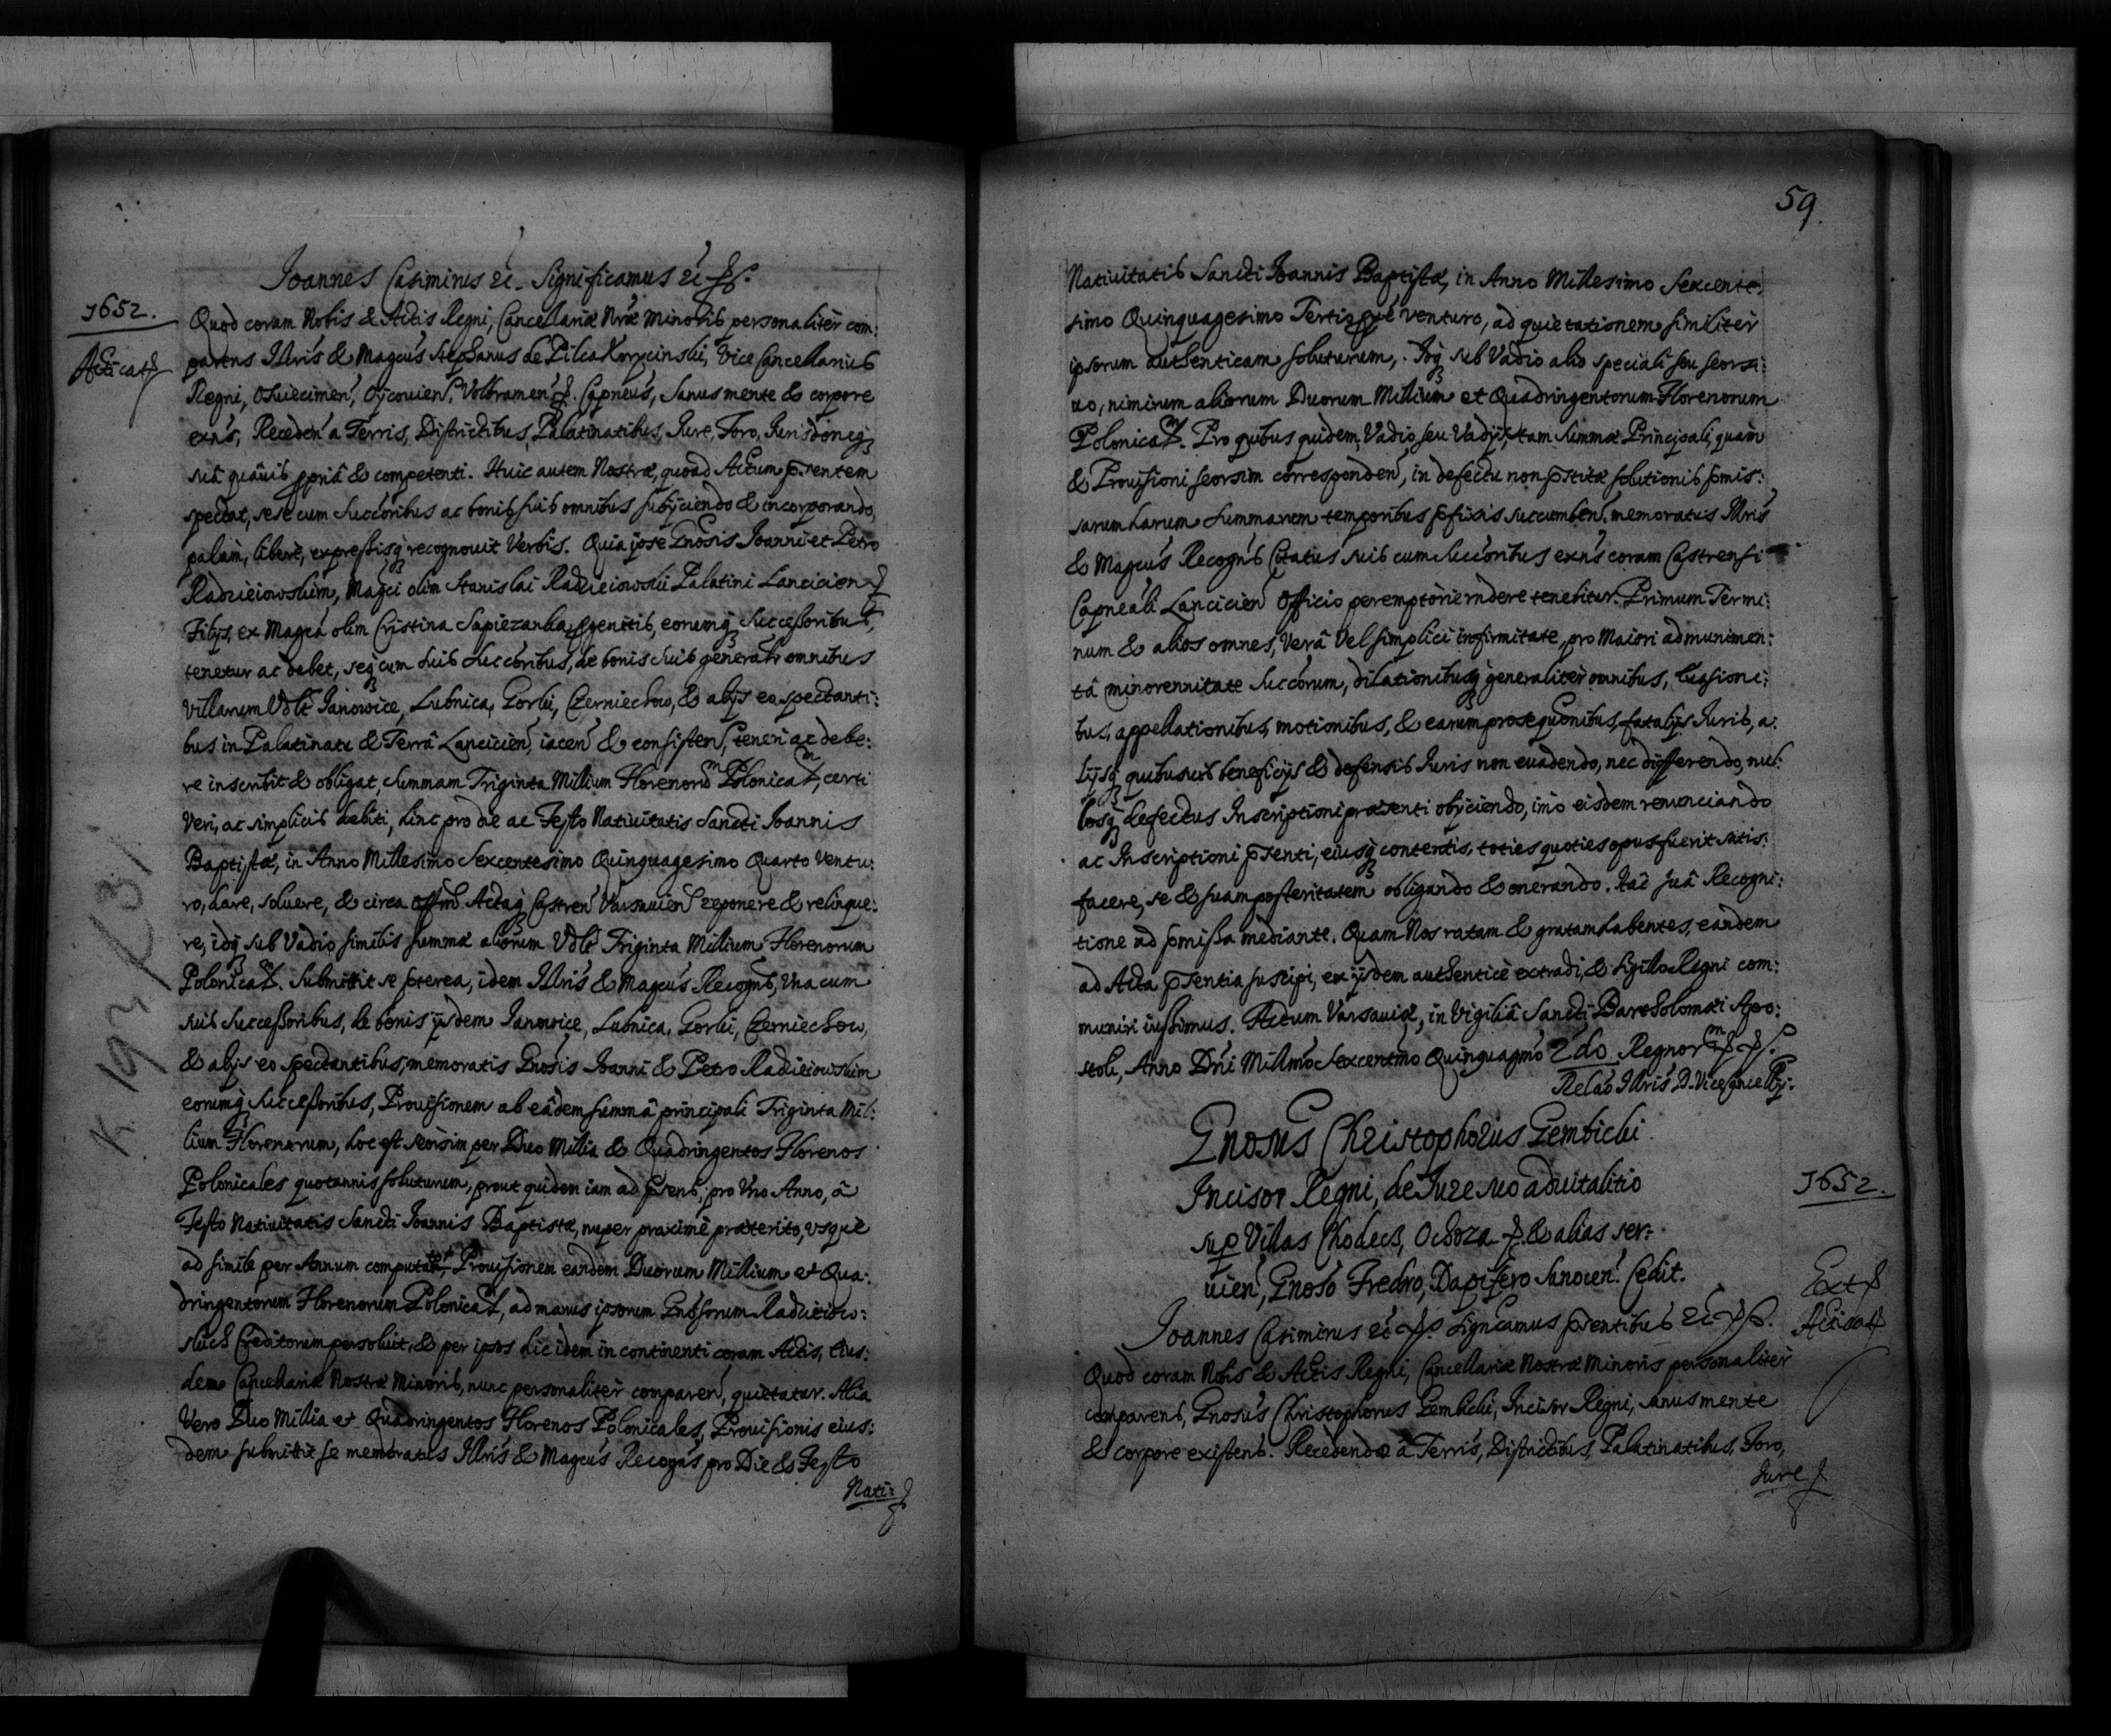 Joannes Casimirus &c. Significamus &c.
1652.
Acticat
Quod coram Nobis & Actis Regni, Cancellariæ Nræ Minoris personaliter com:
parens Illris & Magcus Stephanus de Pilca Koryciński, Vice Cancellarius
Regni, Osuiecimen, Oycouien, Volbramen. Capneus, Sanus mente & corpore
exns, Receden a Terris, Districtibus, Palatinatibus, Jure, Foro, Jurisdoneq
suâ quâuis ppriâ & competenti. Huic autem Nostræ, quoad Actum pntem
spectat, sese cum Succoribus ac bonis suis omnibus subijciendo & incorporando,
palàm, liberè, expressisq recognouit Verbis. Quia ipse Gnosis Joanni et Petro
Radzieiowskim, Magci olim Stanislai Radzieiowskii Palatini Lancicien
Filijs, ex Magca olim Cristina Sapiezanka pgenitis, eorumq Successoribus,
tenetur ac debet, seq cum suis Succoribus, de bonis suis generalr omnibus
Villarum Vdlt Janowice, Lubnica, Gorki, Czerniechow, & alijs eo spectanti:
bus in Palatinatu & Terrâ Lancicien, iacen & consisten, teneri ac debe:
re inscribit & obligat, Summam Triginta Millium Florenorum Polonical, certi
Veri, ac simplicis debiti, hinc pro die ac Festo Natiuitatis Sancti Joannis
Baptistæ, in Anno Millesimo Sexcentesimo Quinquagesimo Quarto Ventu:
ro, dare, soluere, & circa Offm Actaq Castren Varsauien reponere & relinque:
re, idq sub Vadio similis summæ aliorum Vdlt Triginta Millium Florenorum
Polonical. Submittit se pterea, idem Illris & Magcus Recogns, Vna cum
suis Successoribus, de bonis ijsdem Janowice, Lubnica, Gorki, Czerniechow,
& alijs eo spectantibus, memoratis Gnosis Joanni & Petro Radzieiowskim
eorumq Successoribus, Prouisionem ab eâdem summâ principali Triginta Mil:
lium Florenorum, hoc est seorsim per Duo Millia & Quadringentos Florenos
Polonicales quotannis soluturum, prout quidem iam ad prens, pro Vno Anno, à
Festo Natiuitatis Sancti Joannis Baptistæ, nuper proximè præterito, vsque
ad simile per Annum computat, Prouisionem eandem Duorum Millium et Qua:
dringentorum Florenorum Polonical, ad manus ipsorum Gnosorum Radzieiow:
skich Creditorum persoluit, & per ipsos hic idem in continenti coram Actis, Eius:
dem Cancellariæ Nostræ Minoris, nunc personaliter comparen, quietatur. Alia
Vero Duo Millia et Quadringentos Florenos Polonicales, Prouisionis eius:
dem submittit se memoratus Illris & Magcus Recogns pro Die & Festo
Nati:
59.
Natiuitatis Sancti Joannis Baptistæ, in Anno Millesimo Sexcente:
simo Quinquagesimo Tertio venturo, ad quietationem similiter
ipsorum authenticam soluturum. Idq sub Vadio alio speciali seu seorsi:
uo, nimirum aliorum Duorum Millium et Quadringentorum Florenorum
Polonical. Pro quibus quidem, Vadio, seu Vadijs, tam summæ Principali, quàm
& Prouisioni seorsim corresponden, in defectu non pstitæ solutionis pmis:
sarum harum Summarum temporibus pfixis succumben, memoratus Illris
& Magcus Recogns Citatus suis cum Succoribus exns coram Castrensi
Capneali Lancicien Officio peremptoriè rndere tenebitur. Primum Termi:
num & alios omnes, verâ vel simplici infirmitate, pro Maiori ad munimen:
tâ minorennitate Succorum, dilationibusq generaliter omnibus, Euasioni:
bus, appellationibus, motionibus, & earum prosequonibus, fatalijs Juris, a:
lijsq quibusuis beneficijs & defensis Juris non euadendo, nec differendo, nul:
losq defectus Inscriptioni præsenti obijciendo, imò eisdem renunciando
ac Inscriptioni pnti, eiusq contentis, toties quoties opus fuerit satis:
facere, se & suam posteritatem obligando & onerando. Hac suâ Recogni:
tione ad pmissa mediante. Quam Nos ratam & gratam habentes, eandem
ad Acta pntia suscipi, ex ijsdem authenticè extradi, & sigillo Regni com:
muniri iussimus. Actum Varsauiæ, in Vigiliâ Sancti Bartholomæi Apo:
stoli, Anno Dni Millmo Sexcentmo Quinquagmo 2do. Regnor
Relao Illris D. Vice Cancellrij.
Gnosus Christophorus Gembicki
Incisor Regni, de Jure suo aduitalitio
sup Villas Chodecz, Ochoza & alias ser:
uien, Gnoso Fredro, Dapifero Sanocen. Cedit.
1652.
Ext
Acticat
Joannes Casimirus &c. Signcamus pntibus &c.
Quod coram Nobis & Actis Regni, Cancellariæ Nostræ Minoris personaliter
comparens, Gnosus Christophorus Gembicki, Incisor Regni, sanus mente
& corpore existens. Recedendo à Terris, Districtibus, Palatinatibus, Foro,
Jure